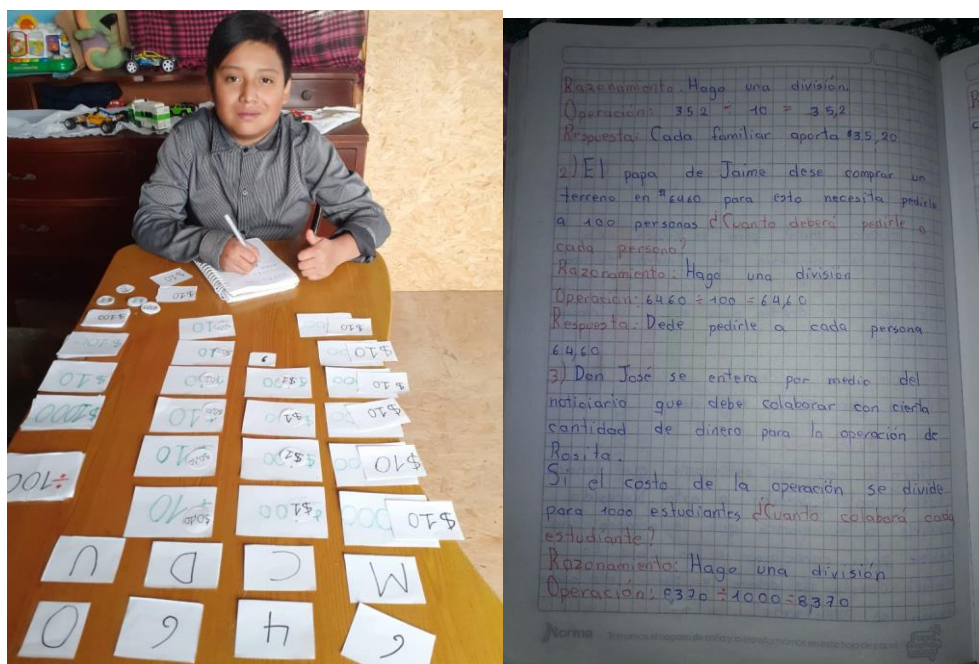 $10
$10
$100 $10 $10
$100 $10 , $10
$10 $10 $1 $10
$1000 $10 $1 $10
÷100 $10 $1 $10
$10 $1 $10
U D C M
0 6 4 6
Razonamiento: Hago una división
Operación: 352 ÷ 10 = 35,2
Respuesta: Cada familiar aporta $35,20
2) El papa de Jaime dese comprar un
terreno en $6460 para esto necesita pedirle
a 100 personas ¿Cuanto deberá pedirle a
cada persona?
Razonamiento: Hago una division
Operación: 6460 ÷ 100 = 64,60
Respuesta: Dede pedirle a cada persona
64,60
3) Don José se entera por medio del
noticiario que debe colaborar con cierta
cantidad de dinero para la operación de
Rosita.
Si el costo de la operación se divide
para 1000 estudiantes ¿Cuanto colabará cada
estudiante?
Razonamiento: Hago una división
Operación: 8370 ÷ 1000 = 8,370
Norma